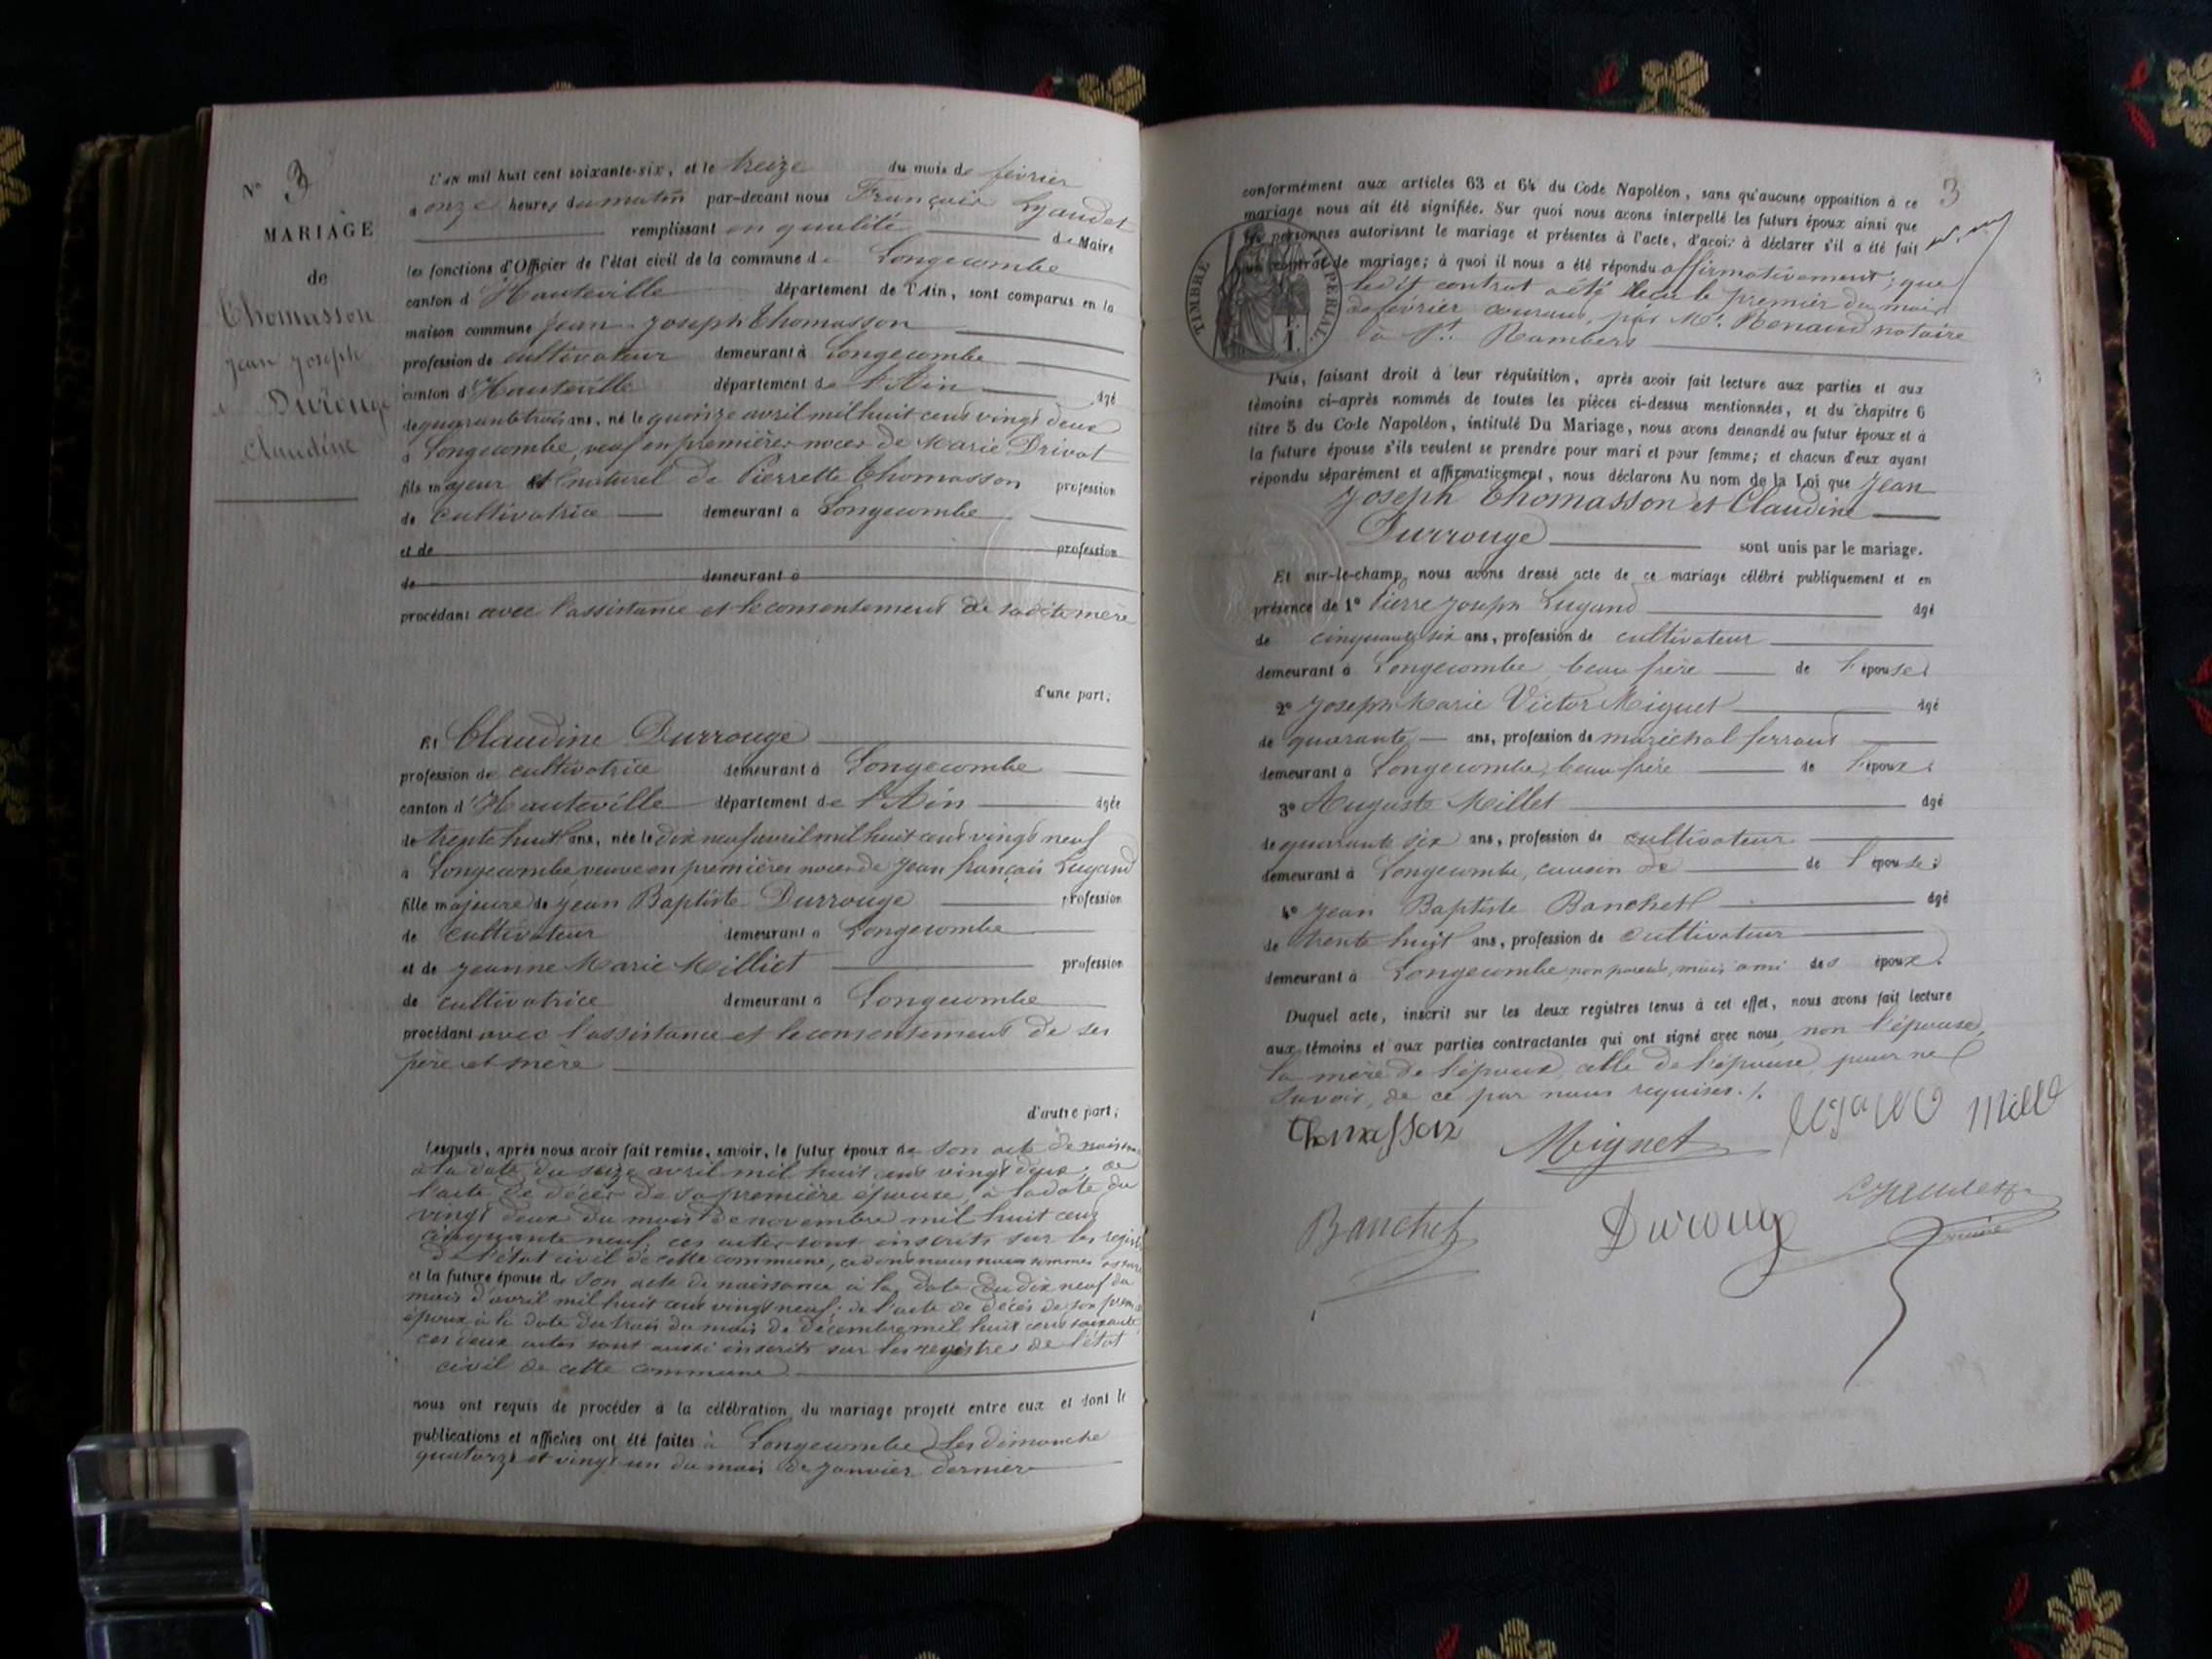 N° 3
MARIAGE
de
Thomasson
Jean Joseph
et Durouge
Claudine
L'AN mil huit cent soixante-six, et le treize du mois de février
à onze heures du matin par-devant nous François
remplissant en qualité de Maire
les fonctions d'Officier de l'état civil de la commune de Longecombe
canton d'Hauteville département de l'Ain, sont comparus en la
maison commune Jean Joseph Thomasson
profession de cultivateur demeurant à Longecombe
canton d'Hauteville département de l'Ain âgé
de quarante trois ans, né le quinze avril mil huit cent vingt deux
à Longecombe, veuf en premières noces de Marie Drivat
fils majeur et naturel de Pierrette Thomasson profession
de cultivatrice demeurant à Longecombe
et de profession
de demeurant à
procédant avec l'assistance et le consentement de sadite mère
d'une part;
Et Claudine Durrouge
profession de cultivatrice demeurant à Longecombe
canton d'Hauteville département de l'Ain âgée
de trente huit ans, née le dix neuf avril mil huit cent vingt neuf
à Longecombe, veuve en premières noces de Jean françois Lugand
fille majeure de Jean Baptiste Durrouge profession
de cultivateur demeurant à Longecombe
et de Jeanne Marie Milliet profession
de cultivatrice demeurant à Longecombe
procédant avec l'assistance et le consentement de ses
père et mère
d'autre part;
Lesquels, après nous avoir fait remise, savoir, le futur époux de son acte de naissance
à la date du seize avril mil huit cent vingt deux; de
l'acte de décès de sa première épouse, à la date du
vingt deux du mois de novembre mil huit cent
cinquante neuf, ces actes sont inscrits sur les
de l'état civil de cette commune, nous sommes
et la future épouse de son acte de naissance à la date du dix neuf du
mois d'avril mil huit cent vingt neuf; de l'acte de décès de son
époux à la date du trois du mois de décembre mil huit cent soixante
ces deux actes sont aussi inscrits sur les registres de l'état
civil de cette commune
nous ont requis de procéder à la célébration du mariage projeté entre eux et dont le
publications et affiches ont été faites à Longecombe les dimanche
quatorze et vingt un du mois de Janvier dernier
3
conformément aux articles 63 et 64 du Code Napoléon, sans qu'aucune opposition à ce
mariage nous ait été signifiée. Sur quoi nous avons interpellé les futurs époux ainsi que
les personnes autorisant le mariage et présentes à l'acte, d'avoir à déclarer s'il a été fait
un contrat de mariage; à quoi il nous a été répondu affirmativement; que
ledit contrat a été le premier du mois
de février courant, par Me. Renaud notaire
à St. Rambert
TIMBRE IMPÉRIAL
Puis, faisant droit à leur réquisition, après avoir fait lecture aux parties et aux
témoins ci-après nommés de toutes les pièces ci-dessus mentionnées, et du chapitre 6
titre 5 du Code Napoléon, intitulé Du Mariage, nous avons demandé au futur époux et à
la future épouse s'ils veulent se prendre pour mari et pour femme; et chacun d'eux ayant
répondu séparément et affirmativement, nous déclarons Au nom de la Loi que Jean
Joseph Thomasson et Claudine
Durrouge sont unis par le mariage.
Et sur-le-champ, nous avons dressé acte de ce mariage célébré publiquement et en
présence de 1° Pierre Joseph Lugand âgé
de cinquante six ans, profession de cultivateur
demeurant à Longecombe, beau frère de l'épouse;
2° Joseph Marie Victor Miguet âgé
de quarante ans, profession de maréchal ferrant
demeurant à Longecombe, beau frère de l'époux;
3° Auguste Millet âgé
de quarante six ans, profession de cultivateur
demeurant à Longecombe, cousin de de l'épouse;
4° Jean Baptiste Banchet âgé
de trente huit ans, profession de cultivateur
demeurant à Longecombe, non parent, mais ami des époux.
Duquel acte, inscrit sur les deux registres tenus à cet effet, nous avons fait lecture
aux témoins et aux parties contractantes qui ont signé avec nous, non l'épouse,
la mère de l'époux, celle de l'épouse, pour ne
savoir, de ce par nous requises.
Thomasson
Miguet
Banchet